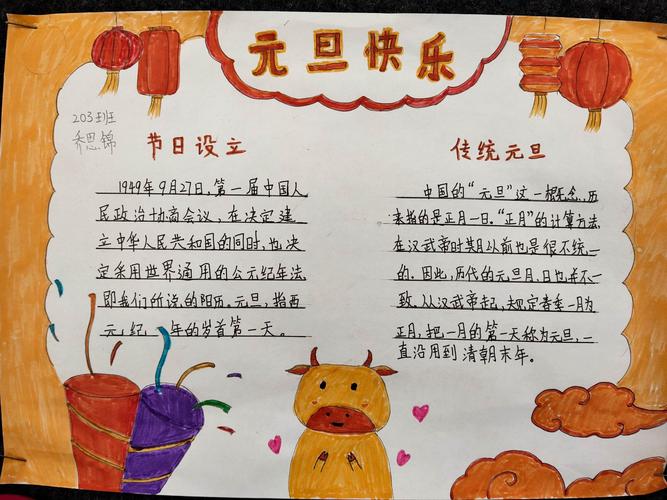 元旦快乐
203班
乔思锦
节日设立
1949年9月27日,第一届中国人
民政治协商会议,在决定建
立中华人民共和国的同时,也决
定采用世界通用的公元纪年法,
即我们所说的阳历。元旦,指西
元,纪,年的岁首第一天。
传统元旦
中国的“元旦”这一概念,历
来指的是正月一日。“正月”的计算方法,
在汉武帝时期以前也是很不统一
的。因此,历代的元旦月、日也并不一
致。从汉武帝起,规定春季一月为
正月,把一月的第一天称为元旦,一
直沿用到清朝末年。